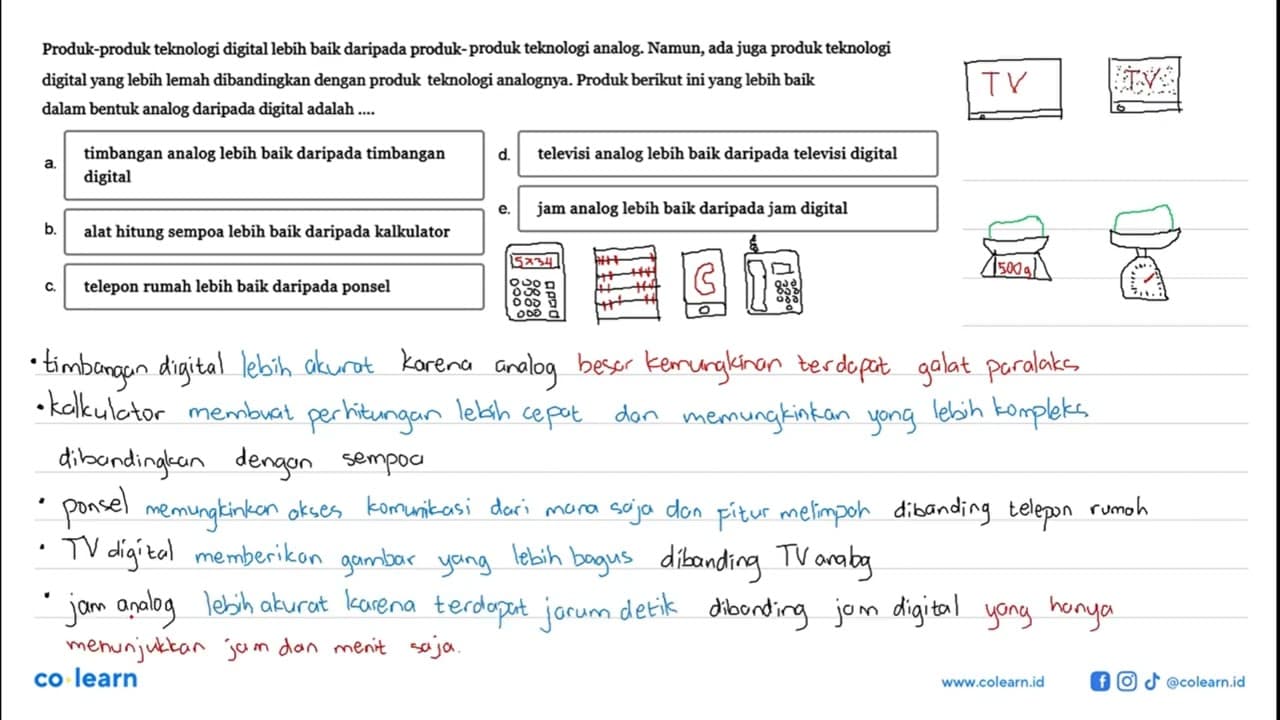 Produk-produk teknologi digital lebih baik daripada produk-produk teknologi analog. Namun, ada juga produk teknologi
digital yang lebih lemah dibandingkan dengan produk teknologi analognya. Produk berikut ini yang lebih baik
dalam bentuk analog daripada digital adalah ....
TV
TV
a. timbangan analog lebih baik daripada timbangan
digital
b. alat hitung sempoa lebih baik daripada kalkulator
c. telepon rumah lebih baik daripada ponsel
d. televisi analog lebih baik daripada televisi digital
e. jam analog lebih baik daripada jam digital
5x34
500g
• timbangan digital lebih akurat karena analog besar kemungkinan terdapat galat paralaks
• kalkulator membuat perhitungan lebih cepat dan memungkinkan yang lebih kompleks
dibandingkan dengan sempoa
• ponsel memungkinkan akses komunikasi dari mana saja dan fitur melimpah dibanding telepon rumah
• TV digital memberikan gambar yang lebih bagus dibanding TV analog
• jam analog lebih akurat karena terdapat jarum detik dibanding jam digital yang hanya
menunjukkan jam dan menit saja.
co learn
www.colearn.id
@colearn.id